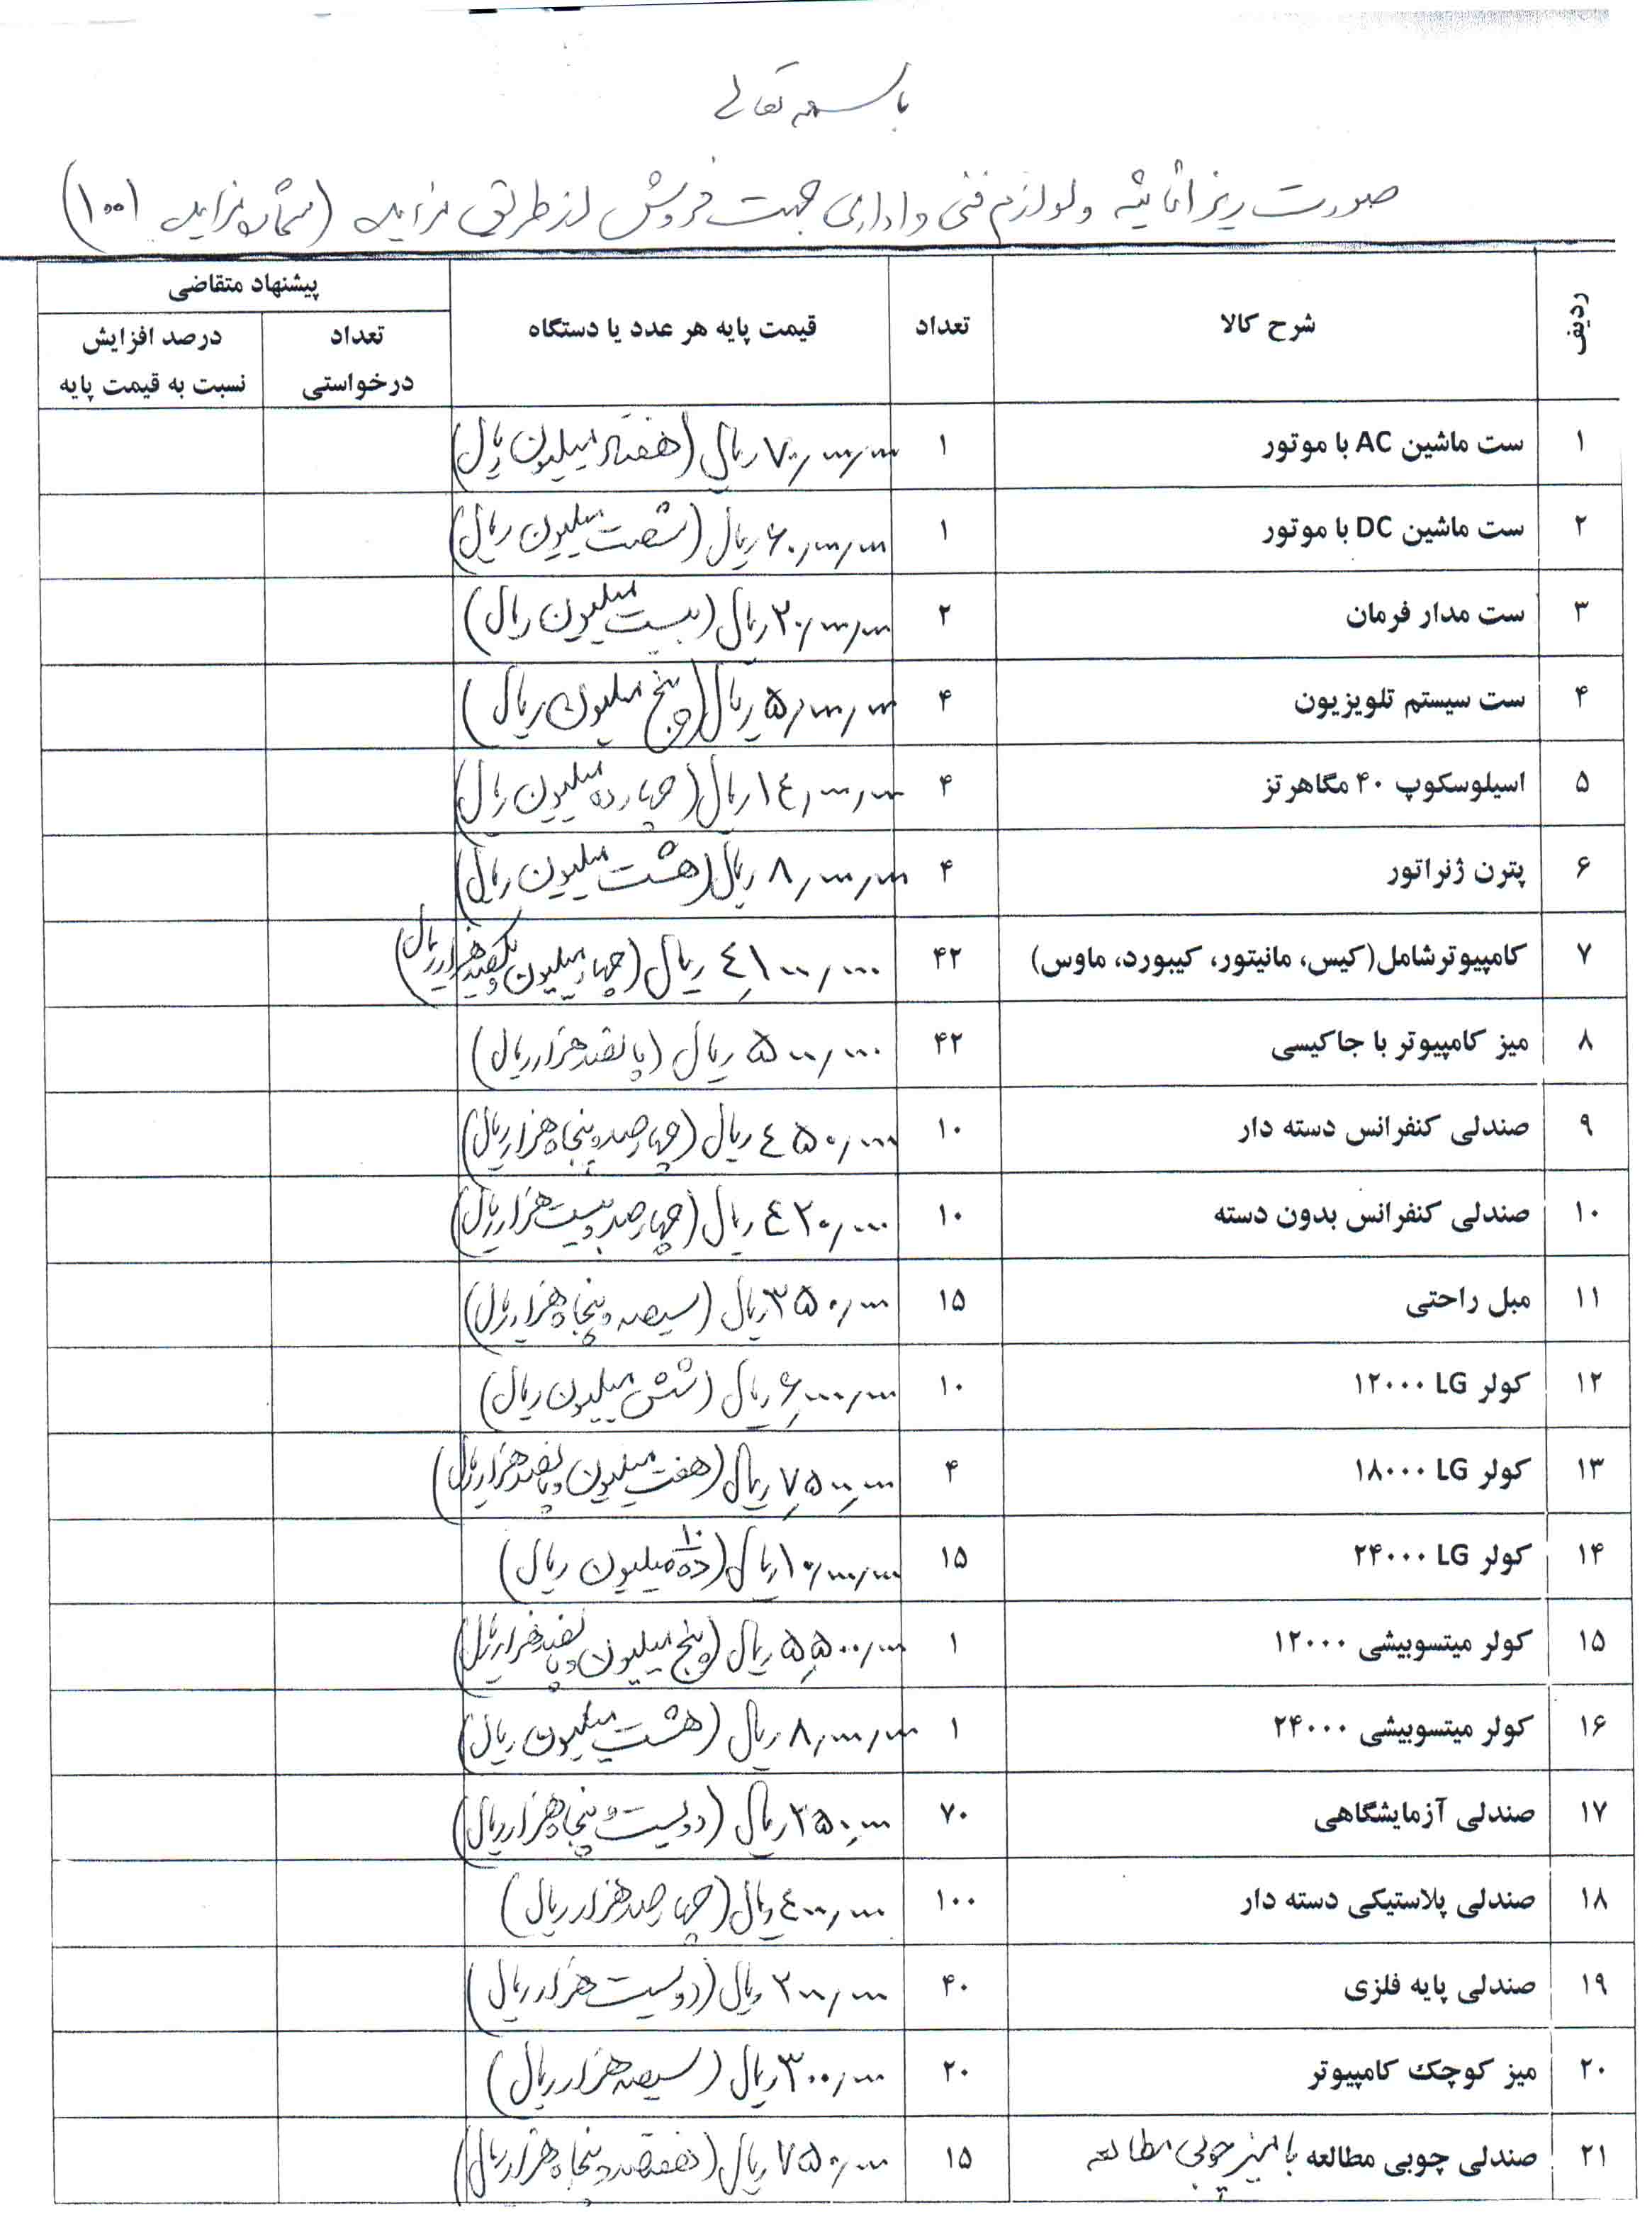 باسمه تعالی
صورت ریز اثاثیه و لوازم فنی و اداری جهت فروش از طریق مزایده (شماره مزایده ۱۰۰۱)
ردیف شرح کالا تعداد قیمت پایه هر عدد یا دستگاه پیشنهاد متقاضی
تعداد درخواستی درصد افزایش نسبت به قیمت پایه
۱ ست ماشین AC با موتور ۱ ۷۰/۰۰۰/۰۰۰ ریال (هفتاد میلیون ریال)
۲ ست ماشین DC با موتور ۱ ۶۰/۰۰۰/۰۰۰ ریال (شصت میلیون ریال)
۳ ست مدار فرمان ۲ ۲۰/۰۰۰/۰۰۰ ریال (بیست میلیون ریال)
۴ ست سیستم تلویزیون ۴ ۵/۰۰۰/۰۰۰ ریال (پنج میلیون ریال)
۵ اسیلوسکوپ ۴۰ مگاهرتز ۴ ۱٤/۰۰۰/۰۰۰ ریال (چهارده میلیون ریال)
۶ پترن ژنراتور ۴ ۸/۰۰۰/۰۰۰ ریال (هشت میلیون ریال)
۷ کامپیوترشامل(کیس، مانیتور، کیبورد، ماوس) ۴۲ ٤/۱۰۰/۰۰۰ ریال (چهار میلیون و یکصد هزار ریال)
۸ میز کامپیوتر با جاکیسی ۴۲ ۵۰۰/۰۰۰ ریال (پانصد هزار ریال)
۹ صندلی کنفرانس دسته دار ۱۰ ٤۵۰/۰۰۰ ریال (چهارصد و پنجاه هزار ریال)
۱۰ صندلی کنفرانس بدون دسته ۱۰ ٤۲۰/۰۰۰ ریال (چهارصد و بیست هزار ریال)
۱۱ مبل راحتی ۱۵ ۳۵۰/۰۰۰ ریال (سیصد و پنجاه هزار ریال)
۱۲ کولر LG ۱۲۰۰۰ ۱۰ ۶/۰۰۰/۰۰۰ ریال (شش میلیون ریال)
۱۳ کولر LG ۱۸۰۰۰ ۴ ۷/۵۰۰/۰۰۰ ریال (هفت میلیون و پانصد هزار ریال)
۱۴ کولر LG ۲۴۰۰۰ ۱۵ ۱۰/۰۰۰/۰۰۰ ریال (ده ۱۰ میلیون ریال)
۱۵ کولر میتسوبیشی ۱۲۰۰۰ ۱ ۵/۵۰۰/۰۰۰ ریال (پنج میلیون و پانصد هزار ریال)
۱۶ کولر میتسوبیشی ۲۴۰۰۰ ۱ ۸/۰۰۰/۰۰۰ ریال (هشت میلیون ریال)
۱۷ صندلی آزمایشگاهی ۷۰ ۲۵۰/۰۰۰ ریال (دویست و پنجاه هزار ریال)
۱۸ صندلی پلاستیکی دسته دار ۱۰۰ ٤۰۰/۰۰۰ ریال (چهارصد هزار ریال)
۱۹ صندلی پایه فلزی ۴۰ ۲۰۰/۰۰۰ ریال (دویست هزار ریال)
۲۰ میز کوچک کامپیوتر ۲۰ ۳۰۰/۰۰۰ ریال (سیصد هزار ریال)
۲۱ صندلی چوبی مطالعه با میز چوبی مطالعه ۱۵ ۷۵۰/۰۰۰ ریال (هفتصد و پنجاه هزار ریال)